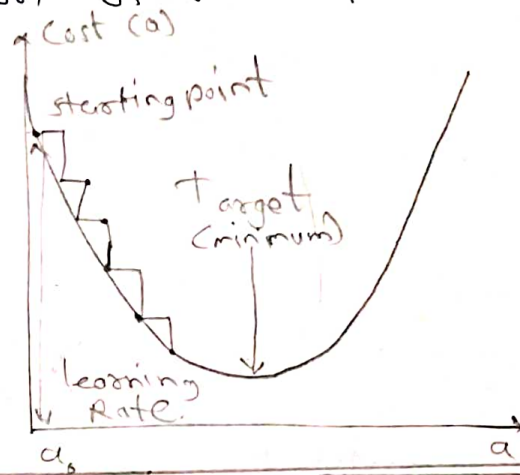 Cost (a)
starting point
Target
(minimum)
learning
Rate.
a₀
a